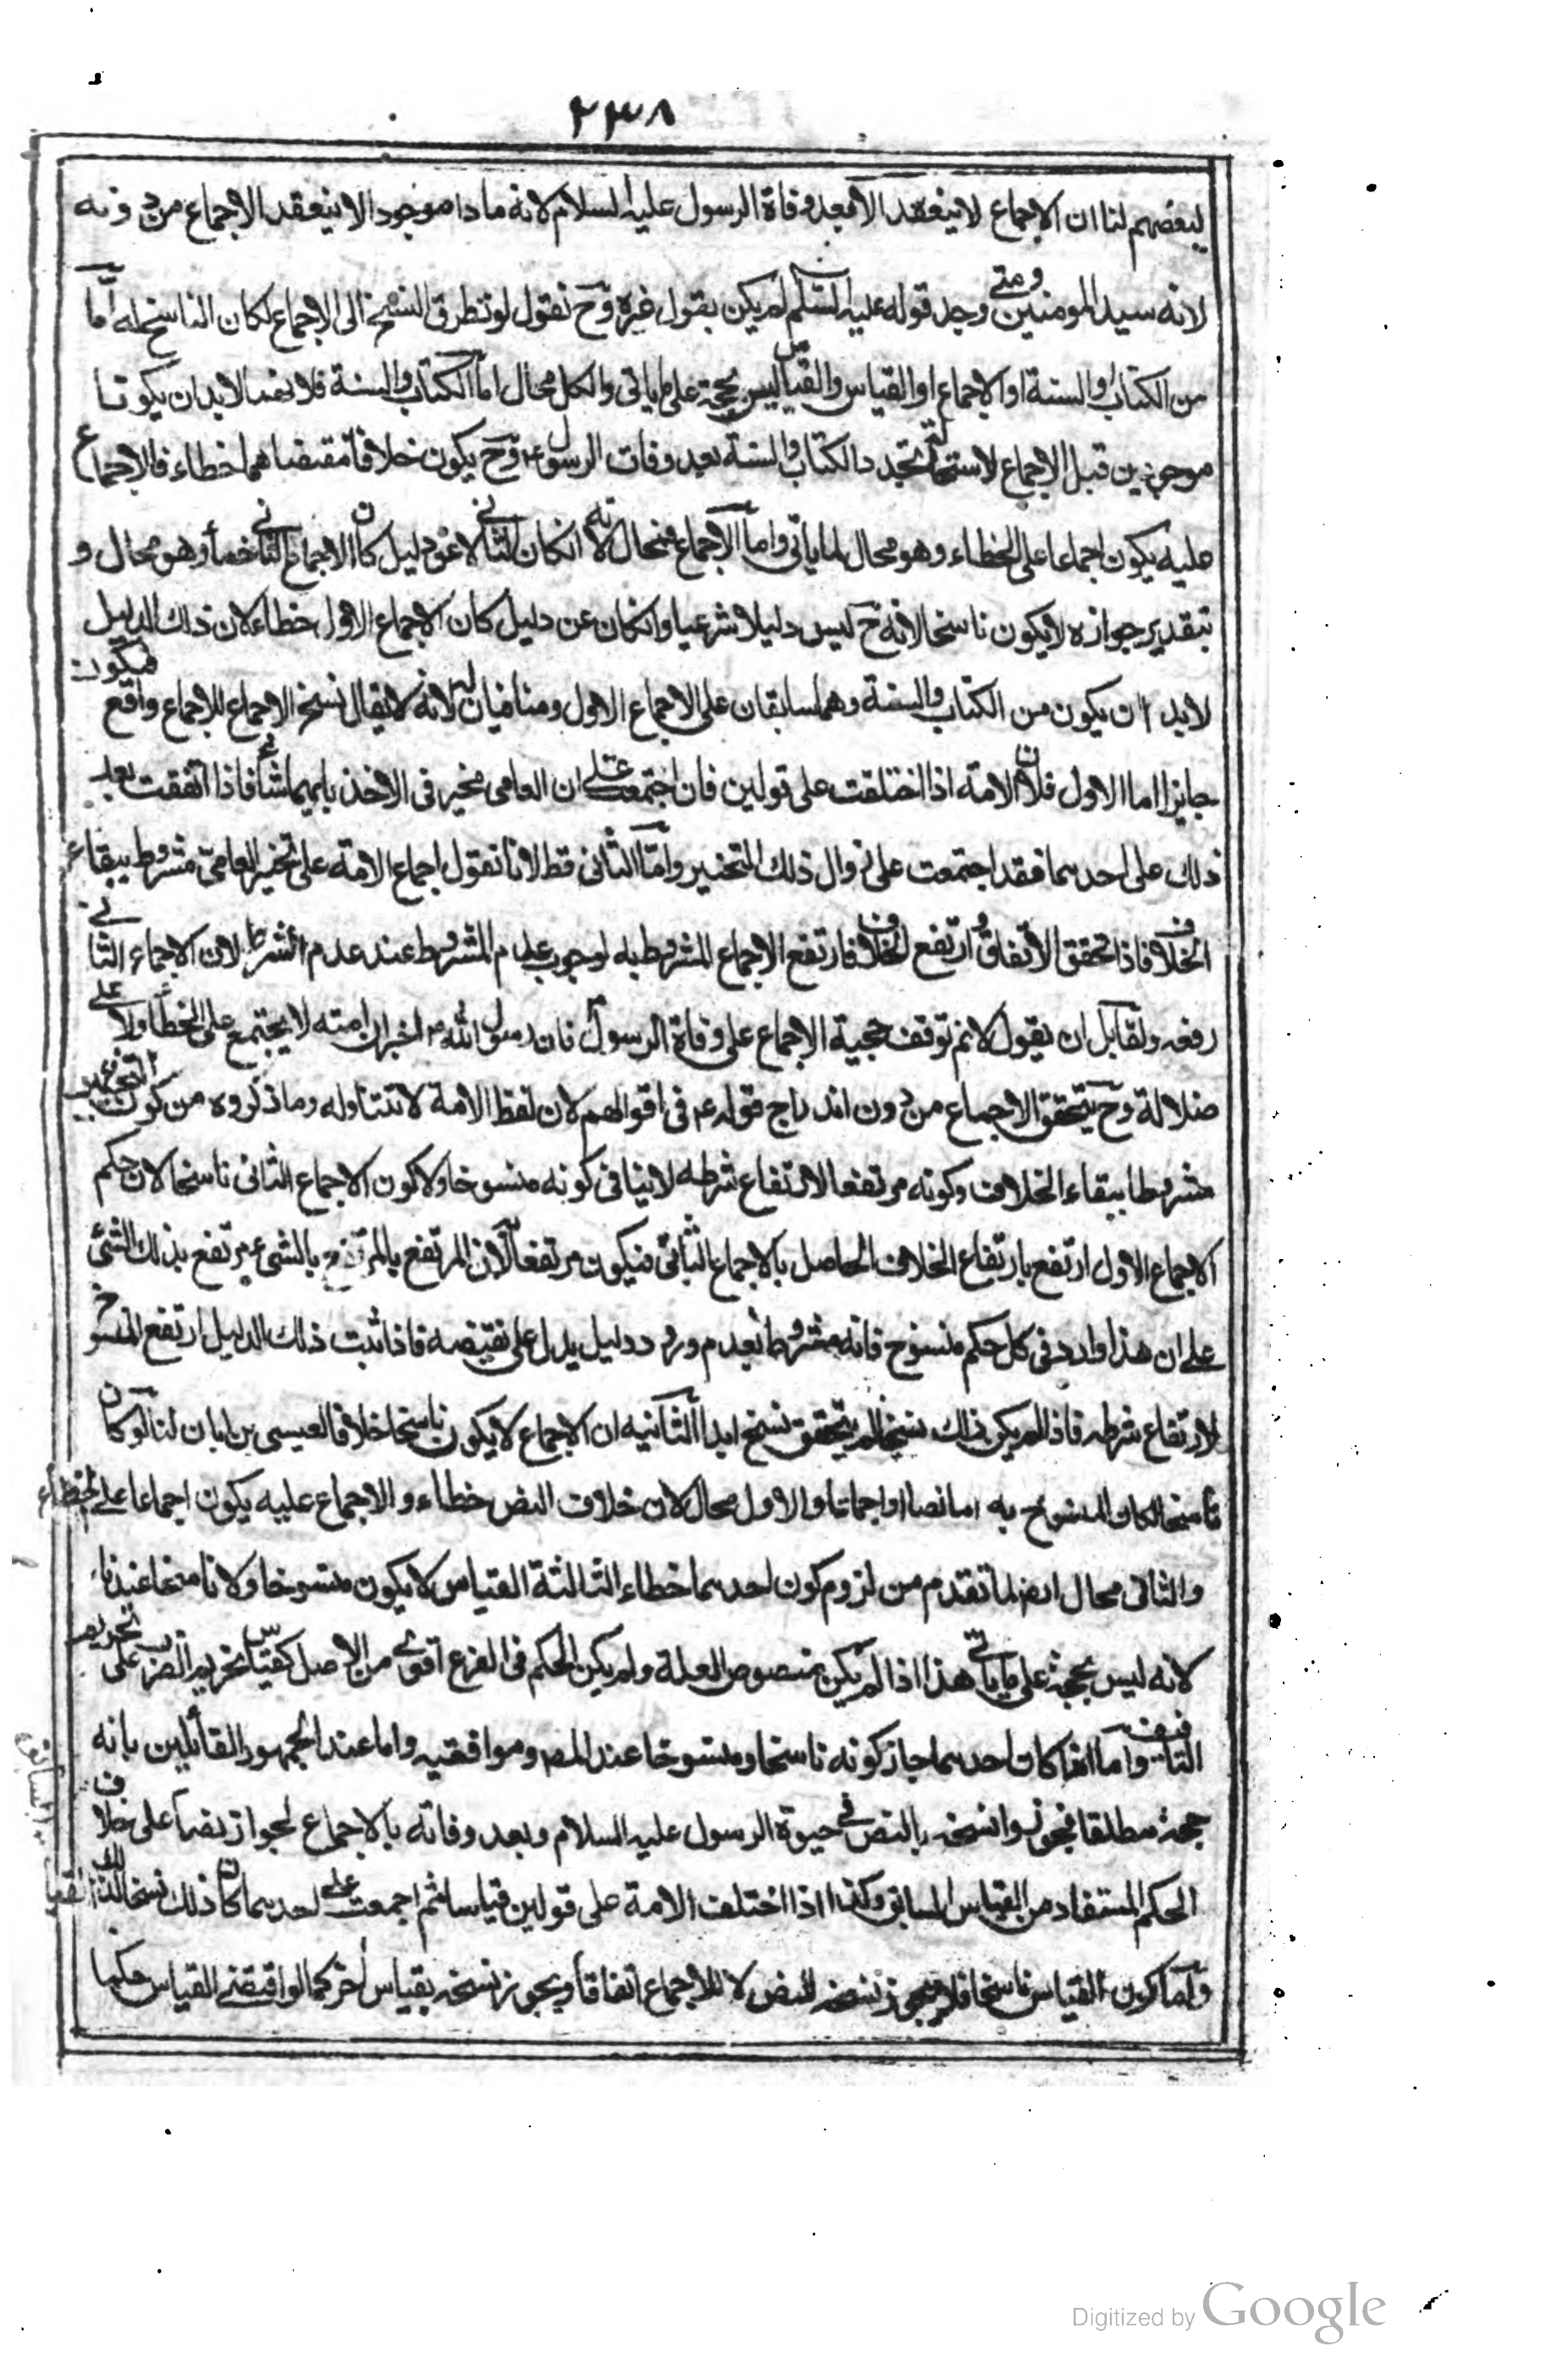 ٢٣٨
لبعضهم لنا ان الاجماع لا ينعقد الا بعد وفاة الرسول عليه السلام لانه ما دام موجودا لا ينعقد الاجماع من دونه
لانه سيد المومنين ومتى وجد قوله عليه السلم لم يكن بقول غيره وح نقول لو تطرق النسخ الى الاجماع لكان الناسخ له اما
من الكتاب او السنة او الاجماع او القياس والقياس ليس بحجة على ما ياتى والكل محال اما الكتاب والسنة فلانهما لابد ان يكونا
موجودين قبل الاجماع لاستحالة تجدد الكتاب والسنة بعد وفات الرسول ع وح يكون خلاف مقتضاهما خطاء فالاجماع
عليه يكون اجماعا على الخطاء وهو محال لما ياتى واما الاجماع فمحال لانه انكان الثانى لا عن دليل كان الاجماع الثانى خطأ وهو محال و
بتقدير جوازه لا يكون ناسخا لانه ح ليس دليلا شرعيا وانكان عن دليل كان الاجماع الاول خطاء لان ذلك الدليل
لابد ان يكون من الكتاب والسنة وهما سابقان على الاجماع الاول ومنافيان له لانه لا يقال نسخ الاجماع للاجماع واقع فيكون
جايزا اما الاول فلان الامة اذا اختلفت على قولين فان اجتمعت على ان العامى مخير فى الاخذ بايهما شأ فاذا اتفقت بعد
ذلك على احدهما فقد اجتمعت على زوال ذلك التخيير واما الثانى فظ لانا نقول اجماع الامة على تخيير العامى مشروط ببقاء
الخلاف فاذا تحقق الاتفاق ارتفع الخلاف فارتفع الاجماع المشروط به لوجوب عدم المشروط عند عدم الشرط لان الاجماع الثانى
رفعه ولقايل ان يقول لانم توقف حجية الاجماع على وفاة الرسول فان رسول الله ص اخبر ان امته لا يجتمع على الخطأ ولا على
ضلالة وح يتحقق الاجماع من دون اندراج قوله ع فى اقوالهم لان لفظ الامة لا تتناوله وما ذكروه من كون التخيير
مشروطا ببقاء الخلاف وكونه مرتفعا لارتفاع شرطه لا ينافى كونه منسوخا ولا كون الاجماع الثانى ناسخا لان حكم
الاجماع الاول ارتفع بارتفاع الخلاف الحاصل بالاجماع الثانى فيكون مرتفعا لان المرتفع بالمرتفع بالشىء مرتفع بذلك الشئ
على ان هذا وارد فى كل حكم منسوخ فانه مشروط بعدم ورود دليل يدل على نقيضه فاذا ثبت ذلك الدليل ارتفع المنسوخ
لارتفاع شرطه فاذا لم يكن ذلك نسخا لم يتحقق نسخ ابدا الثانيه ان الاجماع لا يكون ناسخا خلافا لعيسى بن ابان لنا لو كان
ناسخا لكان المنسوخ به اما نصا او اجماعا والاول محال لان خلاف النص خطاء والاجماع عليه يكون اجماعا على الخطاء
والثانى محال ايضا لما تقدم من لزوم كون احدهما خطاء الثالثة القياس لا يكون منسوخا ولا ناسخا عندنا
لانه ليس بحجة على ما ياتى هذا اذا لم يكن بمنصوص العلة ولم يكن الحكم فى الفرع اقوى من الاصل كقياس تحريم الضرب على تحريم
التافيف واما اذا كان احدهما جاز كونه ناسخا ومنسوخا عند المص وموافقيه واما عند الجمهور القائلين بانه
حجة مطلقا فجوزوا نسخه بالنص فى حيوة الرسول عليه السلام وبعد وفاته بالاجماع لجواز نصا على خلاف
الحكم المستفاد من القياس السابق وكذا اذا اختلفت الامة على قولين قياسا ثم اجمعت على احدهما كان ذلك نسخا لذلك القياس
واما كون القياس ناسخا فلا يجوز نسخه للنص ولا للاجماع اتفاقا ويجوز نسخه بقياس اخر كما لو اقتضى القياس حكما
Digitized by Google